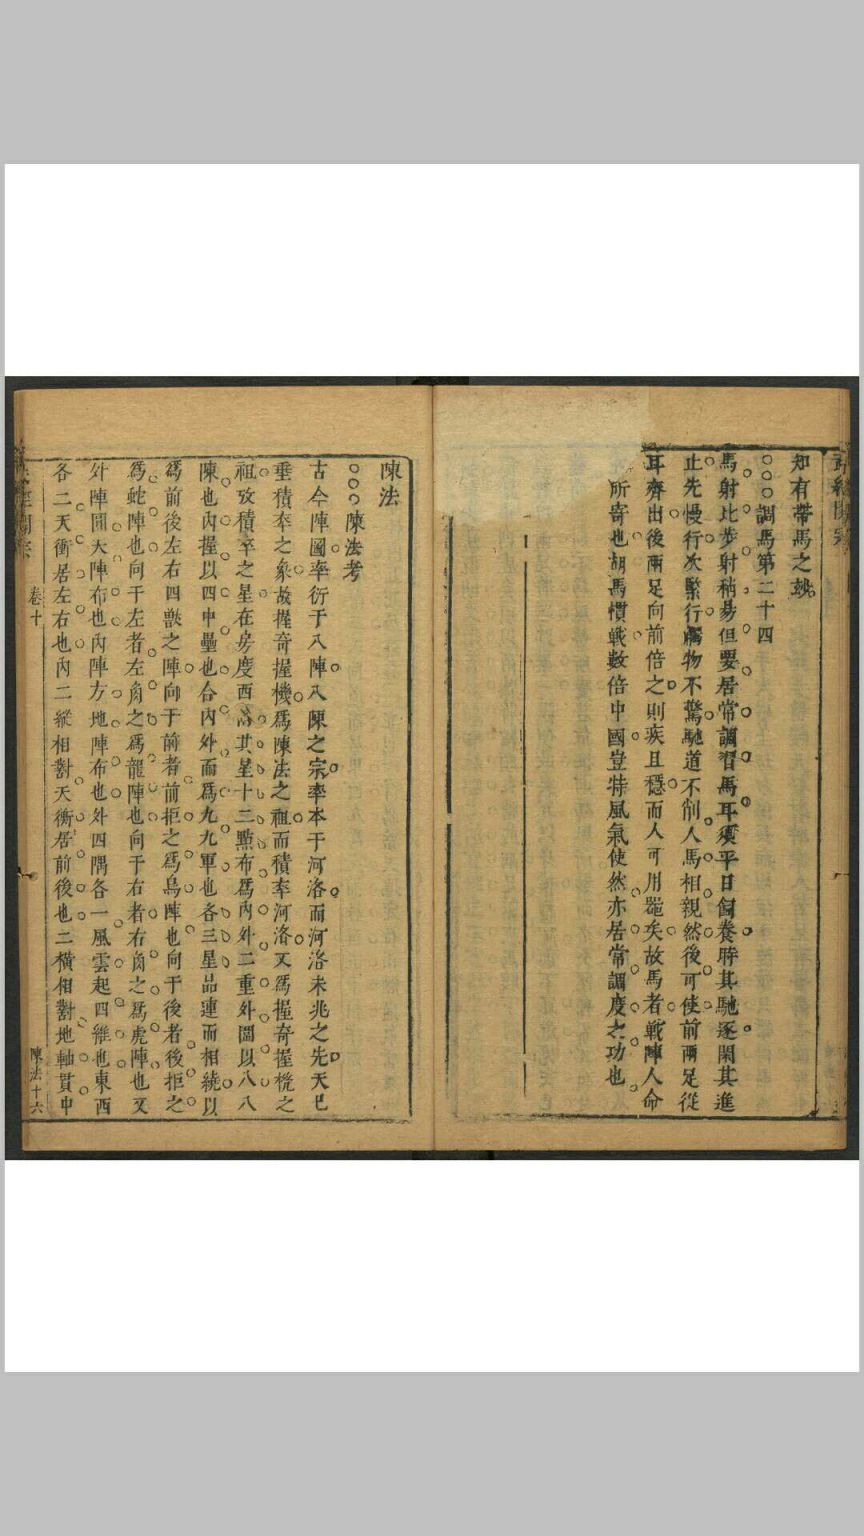 知有帶馬之妙
○○○調馬第二十四
馬射比步射稍易但要居常調習馬耳須平日飼養時其馳逐閑其進
止先慢行次緊行觸物不驚馳道不削人馬相親然後可使前兩足從
耳齊出後兩足向前倍之則疾且穩而人可用器矣故馬者戰陣人命
所寄也胡馬慣戰數倍中國豈特風氣使然亦居常調度之功也
陳法
○○○陳法考
古今陣圖率衍于八陣八陳之宗率本于河洛而河洛未兆之先天已
垂積卒之象故握奇握機爲陳法之祖而積卒河洛又爲握奇握機之
祖攷積卒之星在房度西南其星十三點布爲內外二重外圓以八八
陳也內握以四中壘也合內外而爲九九軍也各三星品連而相繞以
爲前後左右四獸之陣向于前者前拒之爲鳥陣也向于後者後拒之
爲蛇陣也向于左者左角之爲龍陣也向于右者右角之爲虎陣也又
外陣圓天陣布也內陣方地陣布也外四隅各一風雲起四維也東西
各二天衝居左右也內二縱相對天衡居前後也二橫相對地軸貫中
卷十
陳法十六